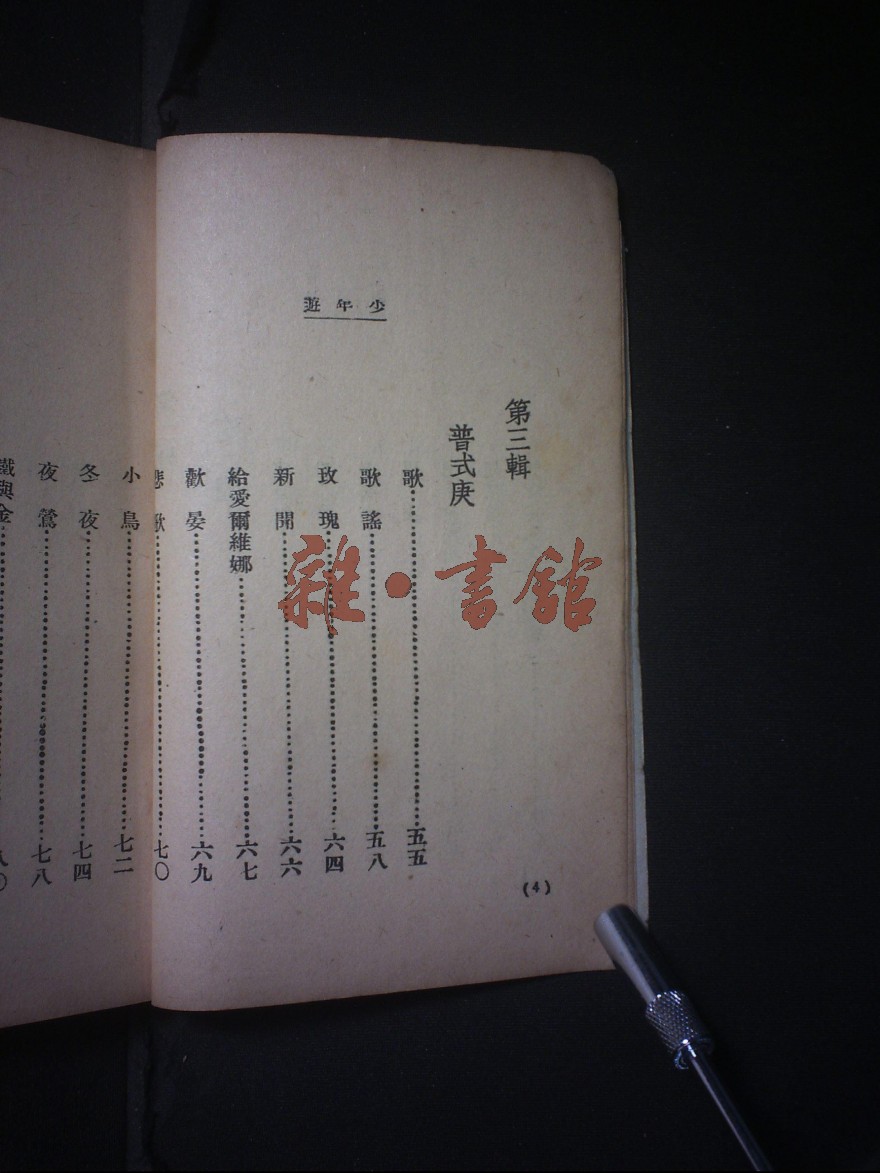 少年遊
第三輯
普式庚
歌……五五
歌謠……五八
玫瑰……六四
新聞……六六
給愛爾維娜……六七
歡宴……六九
悲歌……七〇
小鳥……七二
冬夜……七四
夜鶯……七八
鐵與金……八〇
(4)
雜·書館